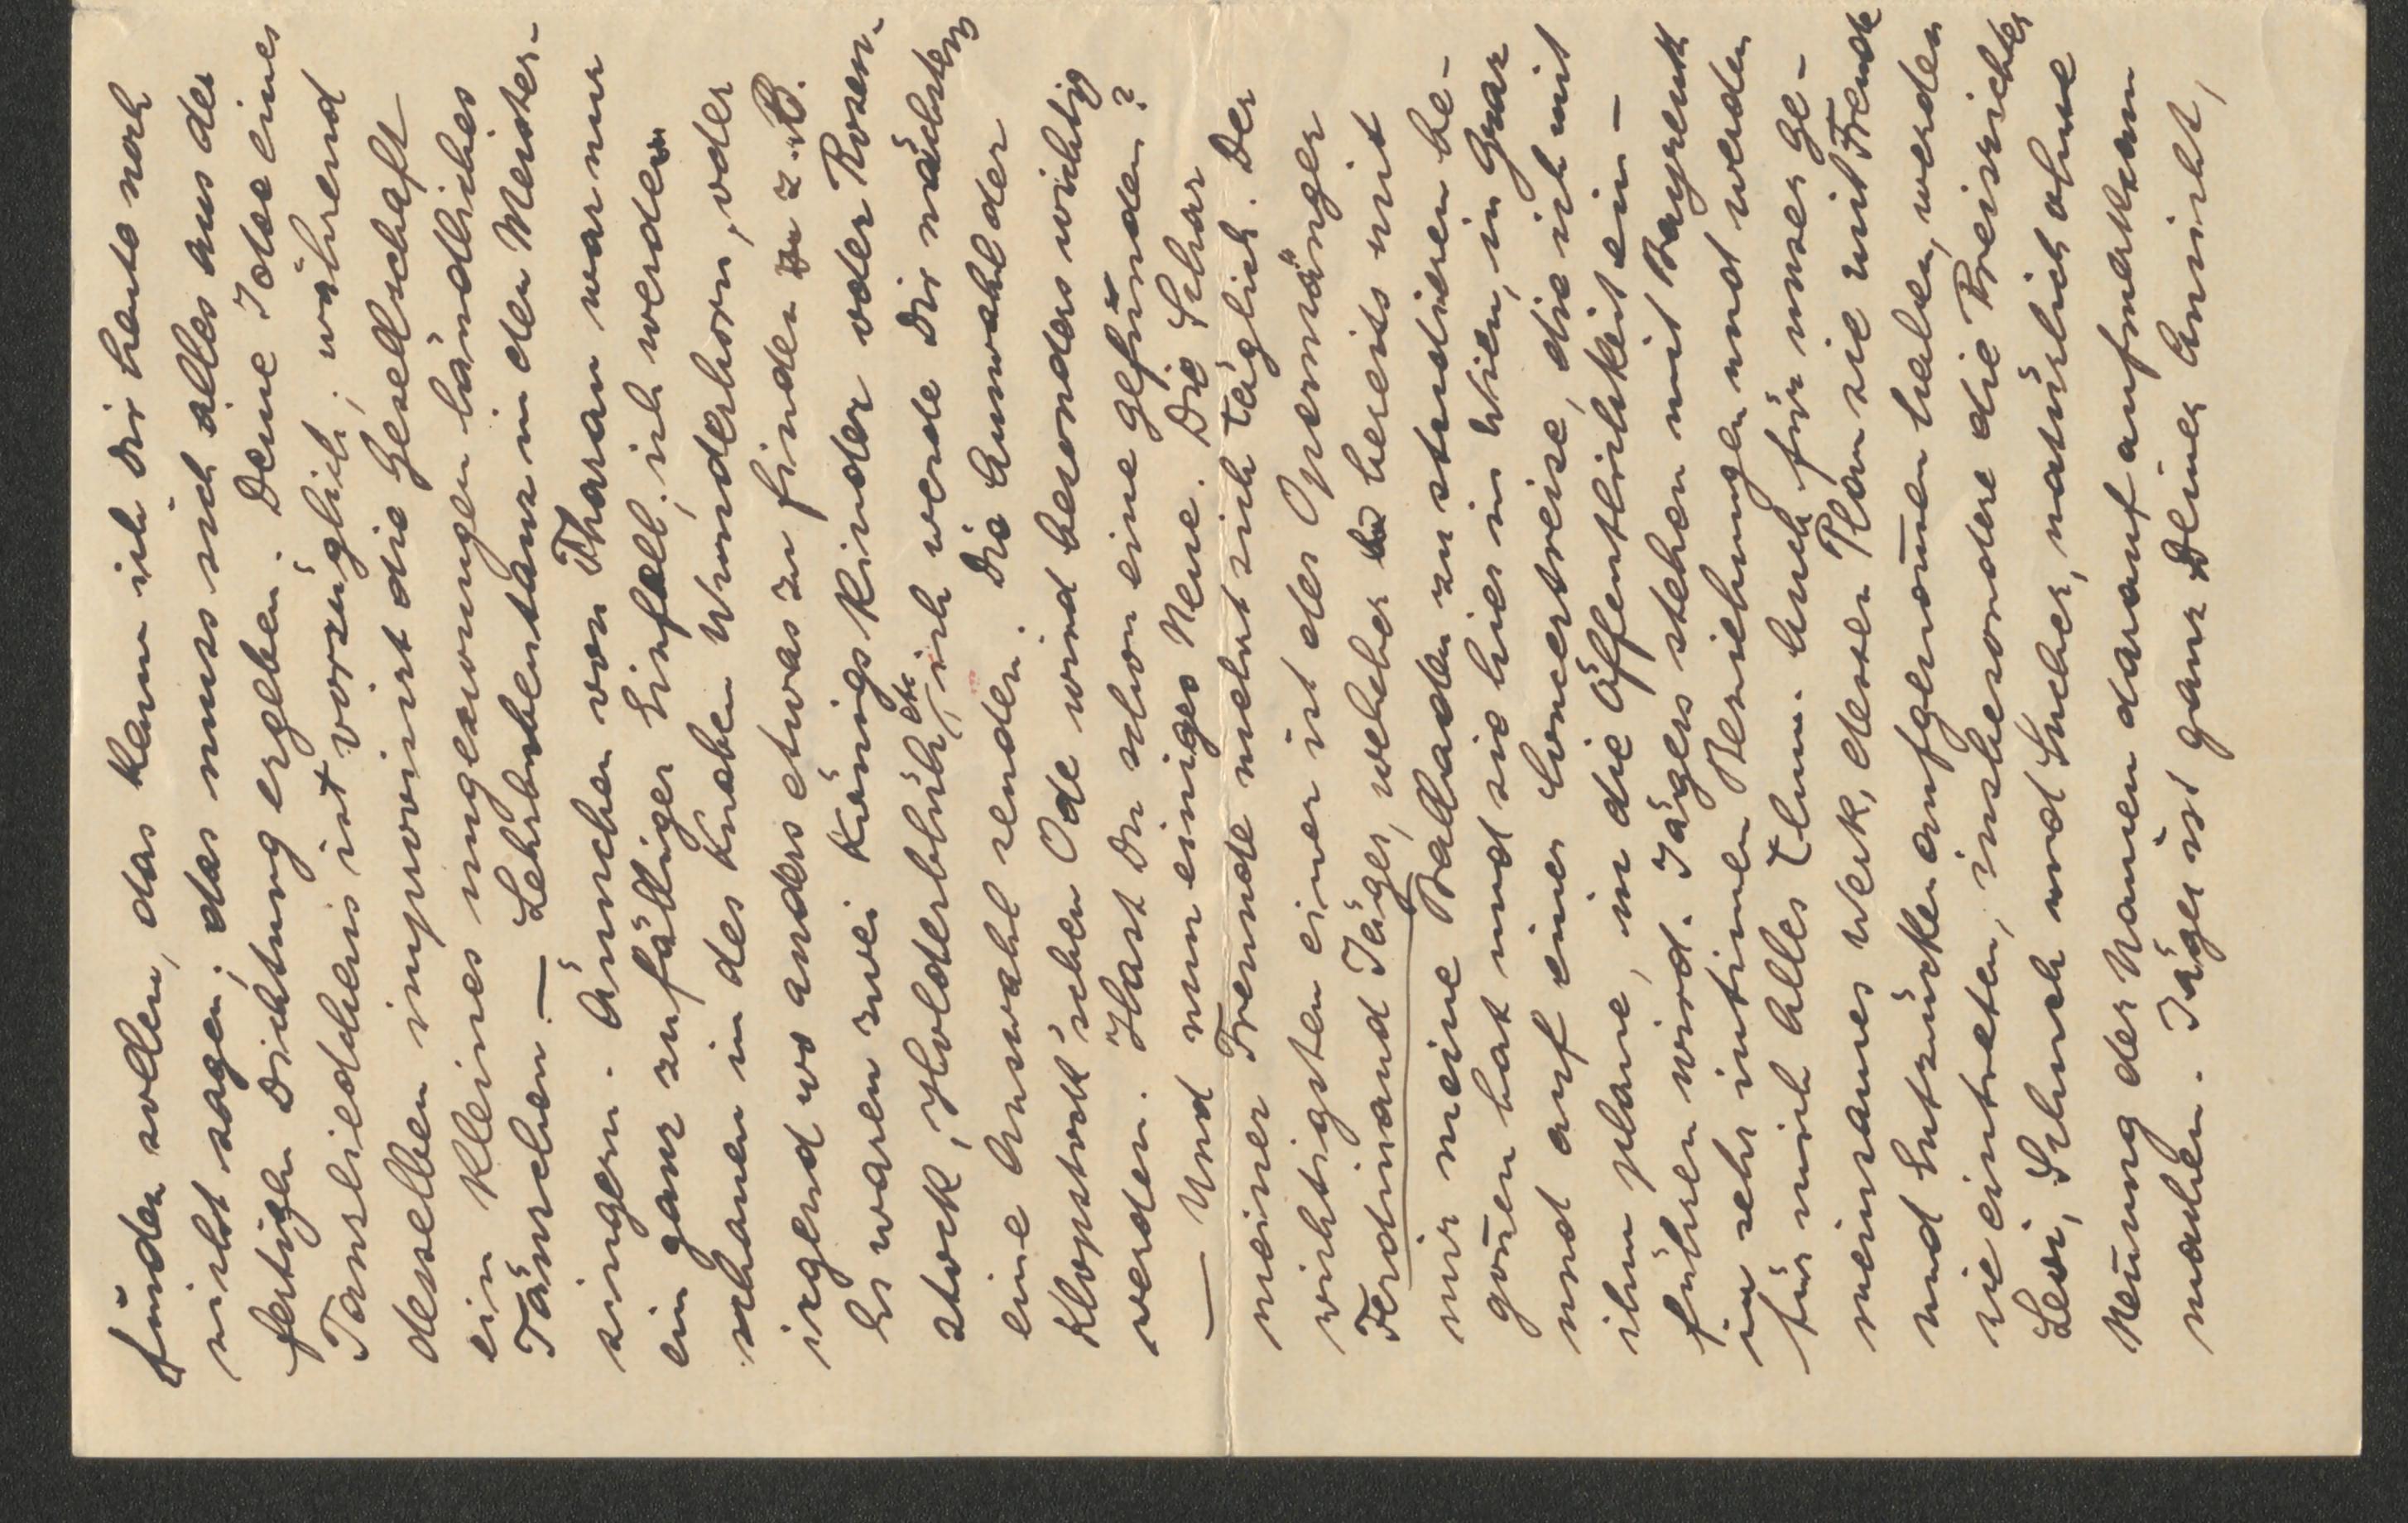 finden sollen, das kann ich Dir heute noch
nicht sagen; das muss sich alles aus der
fertigen Dichtung ergeben. Deine Idee eines
Tanzliedchens ist vorzüglich; während
desselben improvisirt die Gesellschaft
ein kleines ungezwungen ländliches
Tänzchen. — Lehrbubentanz in den Meister-
singern. Ännchen von Tharau war nur
ein ganz zufälliger Einfall; ich werde
schauen in des Knaben Wunderhorn, oder
irgend wo anders etwas zu finden z. B.
Es waren zwei Königskinder oder Rosen-
stock, Holderblüh etc, ich werde Dir nächstens
eine Auswahl senden. Die Auswahl der
Klopstock'schen Ode wird besonders wichtig
werden. Hast Du schon eine gefunden?
— Und nun einiges Neue. Die Schar
meiner Freunde mehrt sich täglich. Der
wichtigsten einer ist der Opernsänger
Ferdinand Jäger, welcher bereits mit
mir meine Balladen zu studieren be-
gonnen hat und sie hier in Wien, in Graz
und auf einer Concertreise, die ich mit
ihm plane, in die Öffentlichkeit ein-
führen wird. Jägers stehen mit Bayreuth
in sehr intimen Beziehungen und werden
für mich Alles thun. Auch für unser ge-
meinsames Werk, dessen Plan sie mit Freude
und Entzücken aufgenommen haben, werden
sie eintreten, insbesondere die Preisrichter
Levi, Schuch und Sucher, natürlich ohne
Nennung der Namen darauf aufmerksam
machen. Jäger ist ganz Deiner Ansicht,